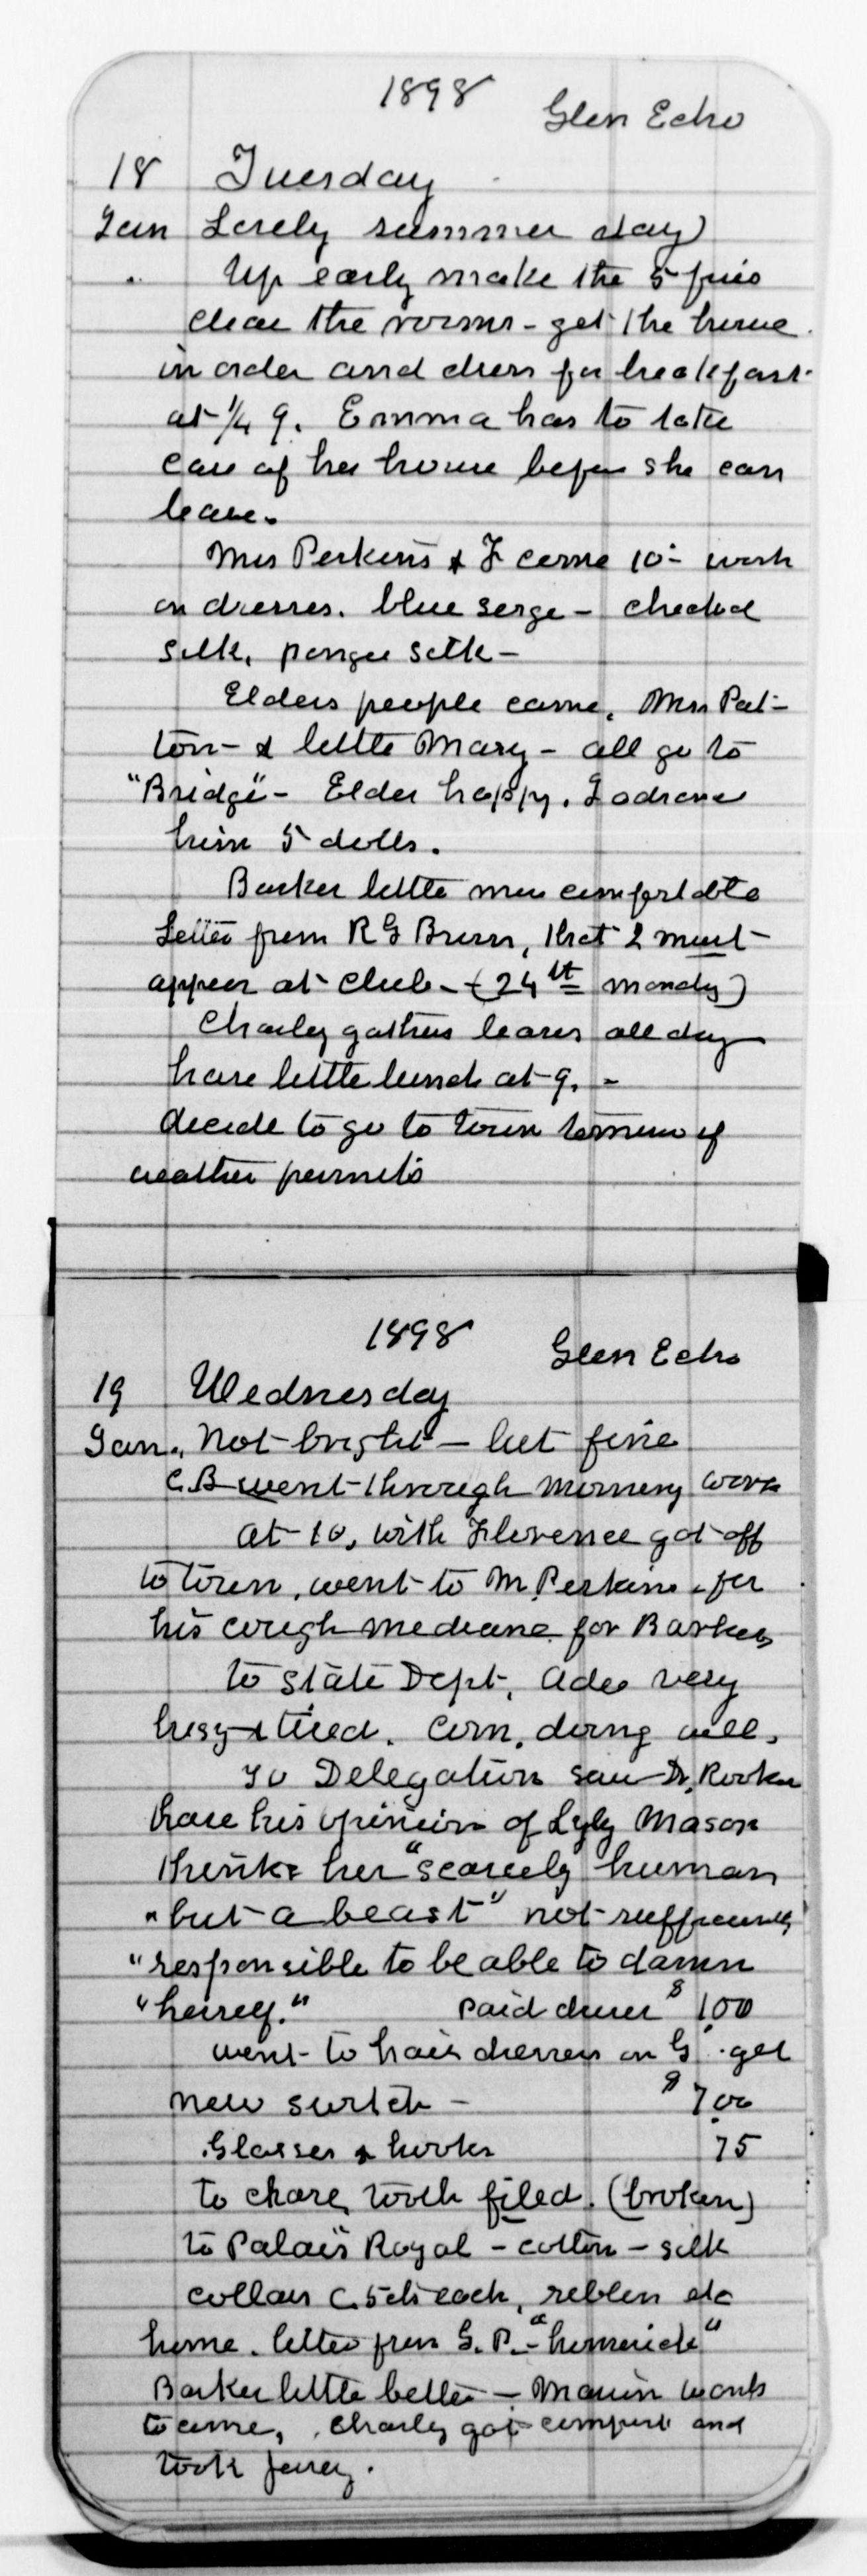 1898
Glen Echo
18 Tuesday
Jan Lovely summer day)
Up early make the 5 fires
clear the rooms - get the house
in order and dress for breakfast
at 1/4 9. Emma has to take
care of her house before she can
leave.
Mrs Perkins & F come 10 - work
on dresses. blue serge - checked
silk, pongee silk -
Elders people came, Mrs Pat-
ton - & little Mary - all go to
"Bridge" - Elder happy. I advance
him 5 dolls.
Barker little more comfortable
Letter from R G Brown, that I must
appear at club - (24th monday)
Charley gathers leaves all day
have little lunch at 9. -
decide to go to town tomorrow if
weather permits
1898
Glen Echo
19 Wednesday
Jan. Not bright - but fine
C.B went through morning work
at 10, with Florence got off
to town, went to M Perkins for
his cough medicine for Barker
to State Dept, Adee very
busy & tired. Com. doing well.
To Delegation saw Dr. Rooker
have his opinion of Lyly Mason
thinks her "scarcely human
"but a beast" not sufficiently
"responsible to be able to damn
"herself." paid dinner $1.00
went to hair dressers on G get
new switch - $7.00
Glasses & hooks 75
to chase, tooth filed. (broken)
to Palais Royal - cotton - silk
collars C. 5cts each, ribbon etc
home. letter from G. P. - "homesick"
Barker little better - Marion wants
to come, Charley got compost and
took